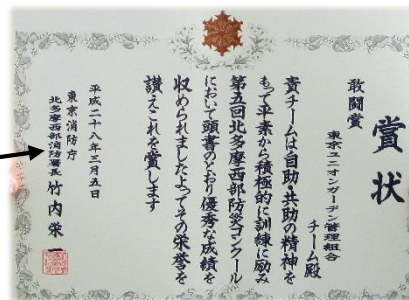 賞状
敢闘賞
東京ユニオンガーデン管理組合
チーム殿
貴チームは自助・共助の精神を
もって平素から積極的に訓練に励み
第五回北多摩西部防災コンクール
において頭書のとおり優秀な成績を
収められましたよってその栄誉を
讃えこれを賞します
平成二十八年三月五日
東京消防庁
北多摩西部消防署長 竹内栄一